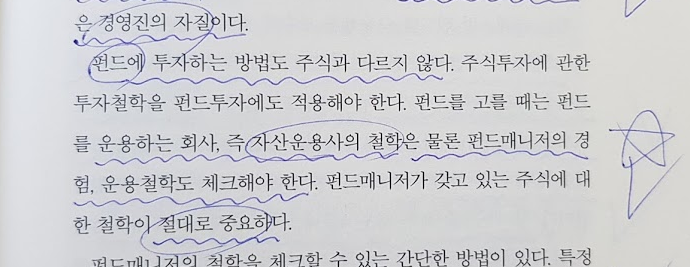 은 경영진의 자질이다.
펀드에 투자하는 방법도 주식과 다르지 않다. 주식투자에 관한
투자철학을 펀드투자에도 적용해야 한다. 펀드를 고를 때는 펀드
를 운용하는 회사, 즉 자산운용사의 철학은 물론 펀드매니저의 경
험, 운용철학도 체크해야 한다. 펀드매니저가 갖고 있는 주식에 대
한 철학이 절대로 중요하다.
펀드매니저의 철학을 체크할 수 있는 간단한 방법이 있다. 특정